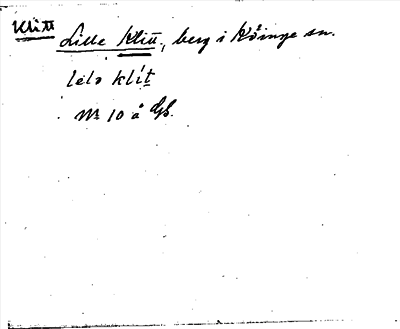 Klitt
Lille Klitt, berg i Köinge sn.
lelə klit
nr 10 å Gb.